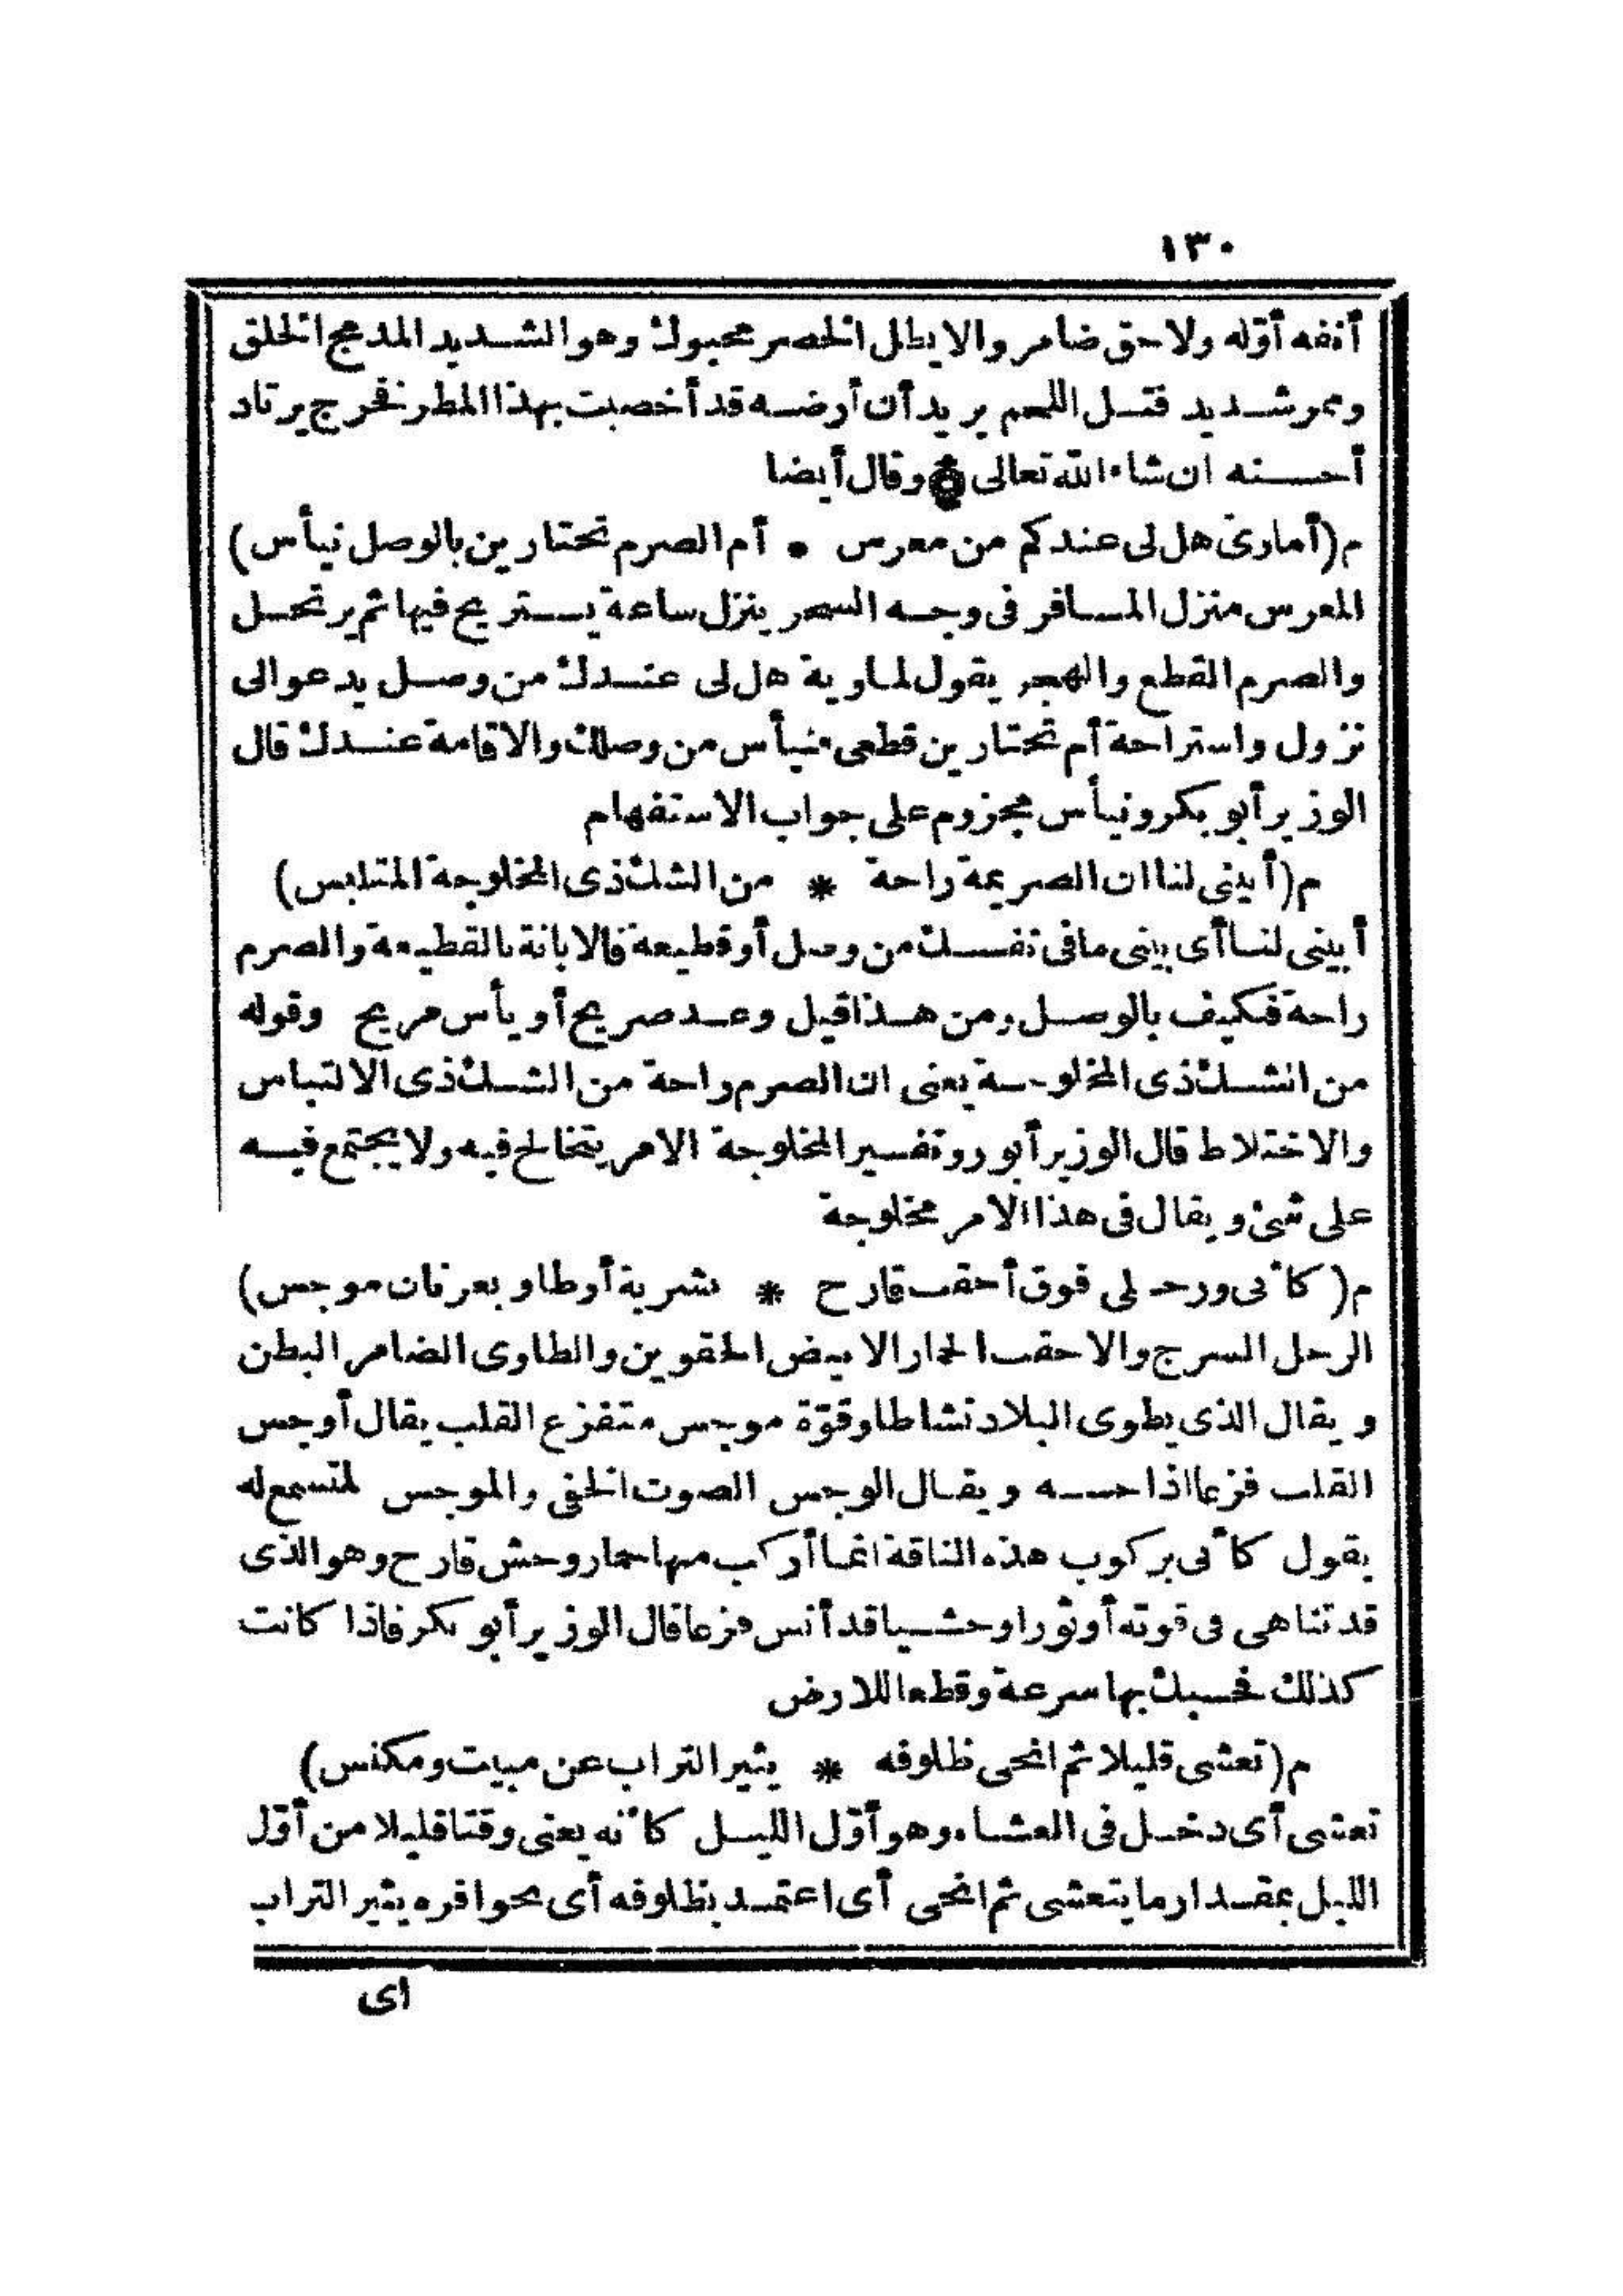 ١٣٠
أنفه أوّله ولاحق ضامر والايطل الخصر محبوك وهو الشديد المدمج الخلق
وممر شديد فتل اللحم يريد أن أرضه قد أخصبت بهذا المطر فخرج يرتاد
أحسنه ان شاء الله تعالى وقال أيضا
م (أماوىّ هل لى عندكم من معرس * أم الصرم تختارين بالوصل نيأس)
المعرس منزل المسافر فى وجه السحر ينزل ساعة يستريح فيها ثم يرتحل
والصرم القطع والهجر يقول لماوية هل لى عندك من وصل يدعو الى
نزول واستراحة أم تختارين قطعى فنيأس من وصلك والاقامة عندك قال
الوزير أبو بكر ونيأس مجزوم على جواب الاستفهام
م (أبينى لنا ان الصريمة راحة * من الشك ذى المخلوجة المتلبس)
أبينى لنا أى بينى ما فى نفسك من وصل أو قطيعة فالابانة بالقطيعة والصرم
راحة فكيف بالوصل ومن هذا قيل وعد صريح أو يأس مريح وقوله
من الشك ذى المخلوجة يعنى ان الصرم راحة من الشك ذى الالتباس
والاختلاط قال الوزير أبو رو تفسير المخلوجة الامر يتخالج فيه ولا يجتمع فيه
على شئ ويقال فى هذا الامر مخلوجة
م (كأنى ورحلى فوق أحقب قارح * بشربة أو طاو بعرنان موجس)
الرحل السرج والاحقب الحمار الابيض الحقوين والطاوى الضامر البطن
ويقال الذى يطوى البلاد نشاطا وقوّة موجس متفزع القلب يقال أوجس
القلب فزعا اذا حسه ويقال الوجس الصوت الخفى والموجس المتسمع له
يقول كأنى بركوب هذه الناقة انما أركب منها حمار وحش قارح وهو الذى
قد تناهى فى قوته أو ثورا وحشيا قد أنس فزعا قال الوزير أبو بكر فاذا كانت
كذلك فحسبك بها سرعة وقطعا للارض
م (تعشى قليلا ثم انحى ظلوفه * يثير التراب عن مبيت ومكنس)
تعشى أى دخل فى العشاء وهو أوّل الليل كأنه يعنى وقتا قليلا من أوّل
الليل بمقدار ما يتعشى ثم انحى أى اعتمد بظلوفه أى بحوافره يثير التراب
اى